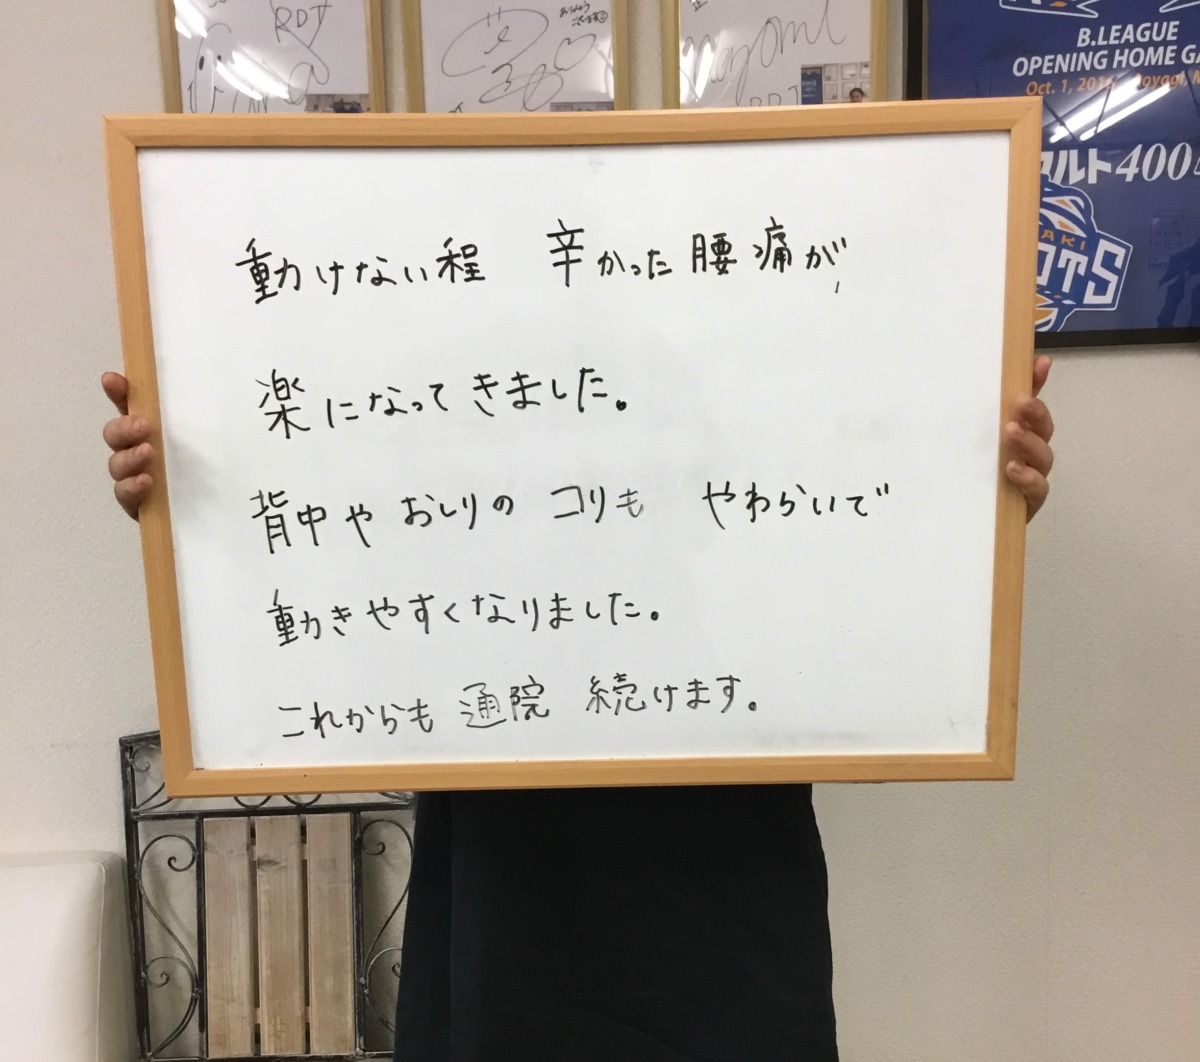 RDT
ありがとう
ございます
RDT
B.LEAGUE
OPENING HOME GA
Oct. 1, 201
ルト400
AKI
OTS
動けない程 辛かった腰痛が
楽になってきました。
背中や おしりの コリも やわらいで
動きやすくなりました。
これからも 通院 続けます。